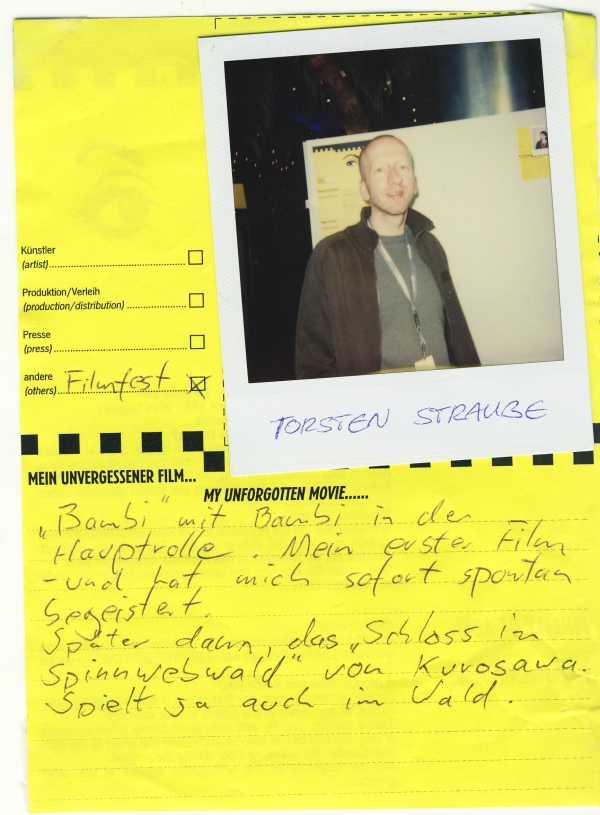 Künstler
(artist)
Produktion/Verleih
(production/distribution)
Presse
(press)
andere
(others) Filmfest
TORSTEN STRAUBE
MEIN UNVERGESSENER FILM...
MY UNFORGOTTEN MOVIE......
„Bambi“ mit Bambi in der
Hauptrolle. Mein erster Film
- und hat mich sofort spontan
begeistert.
Später dann, das „Schloss im
Spinnwebwald“ von Kurosawa.
Spielt ja auch im Wald.